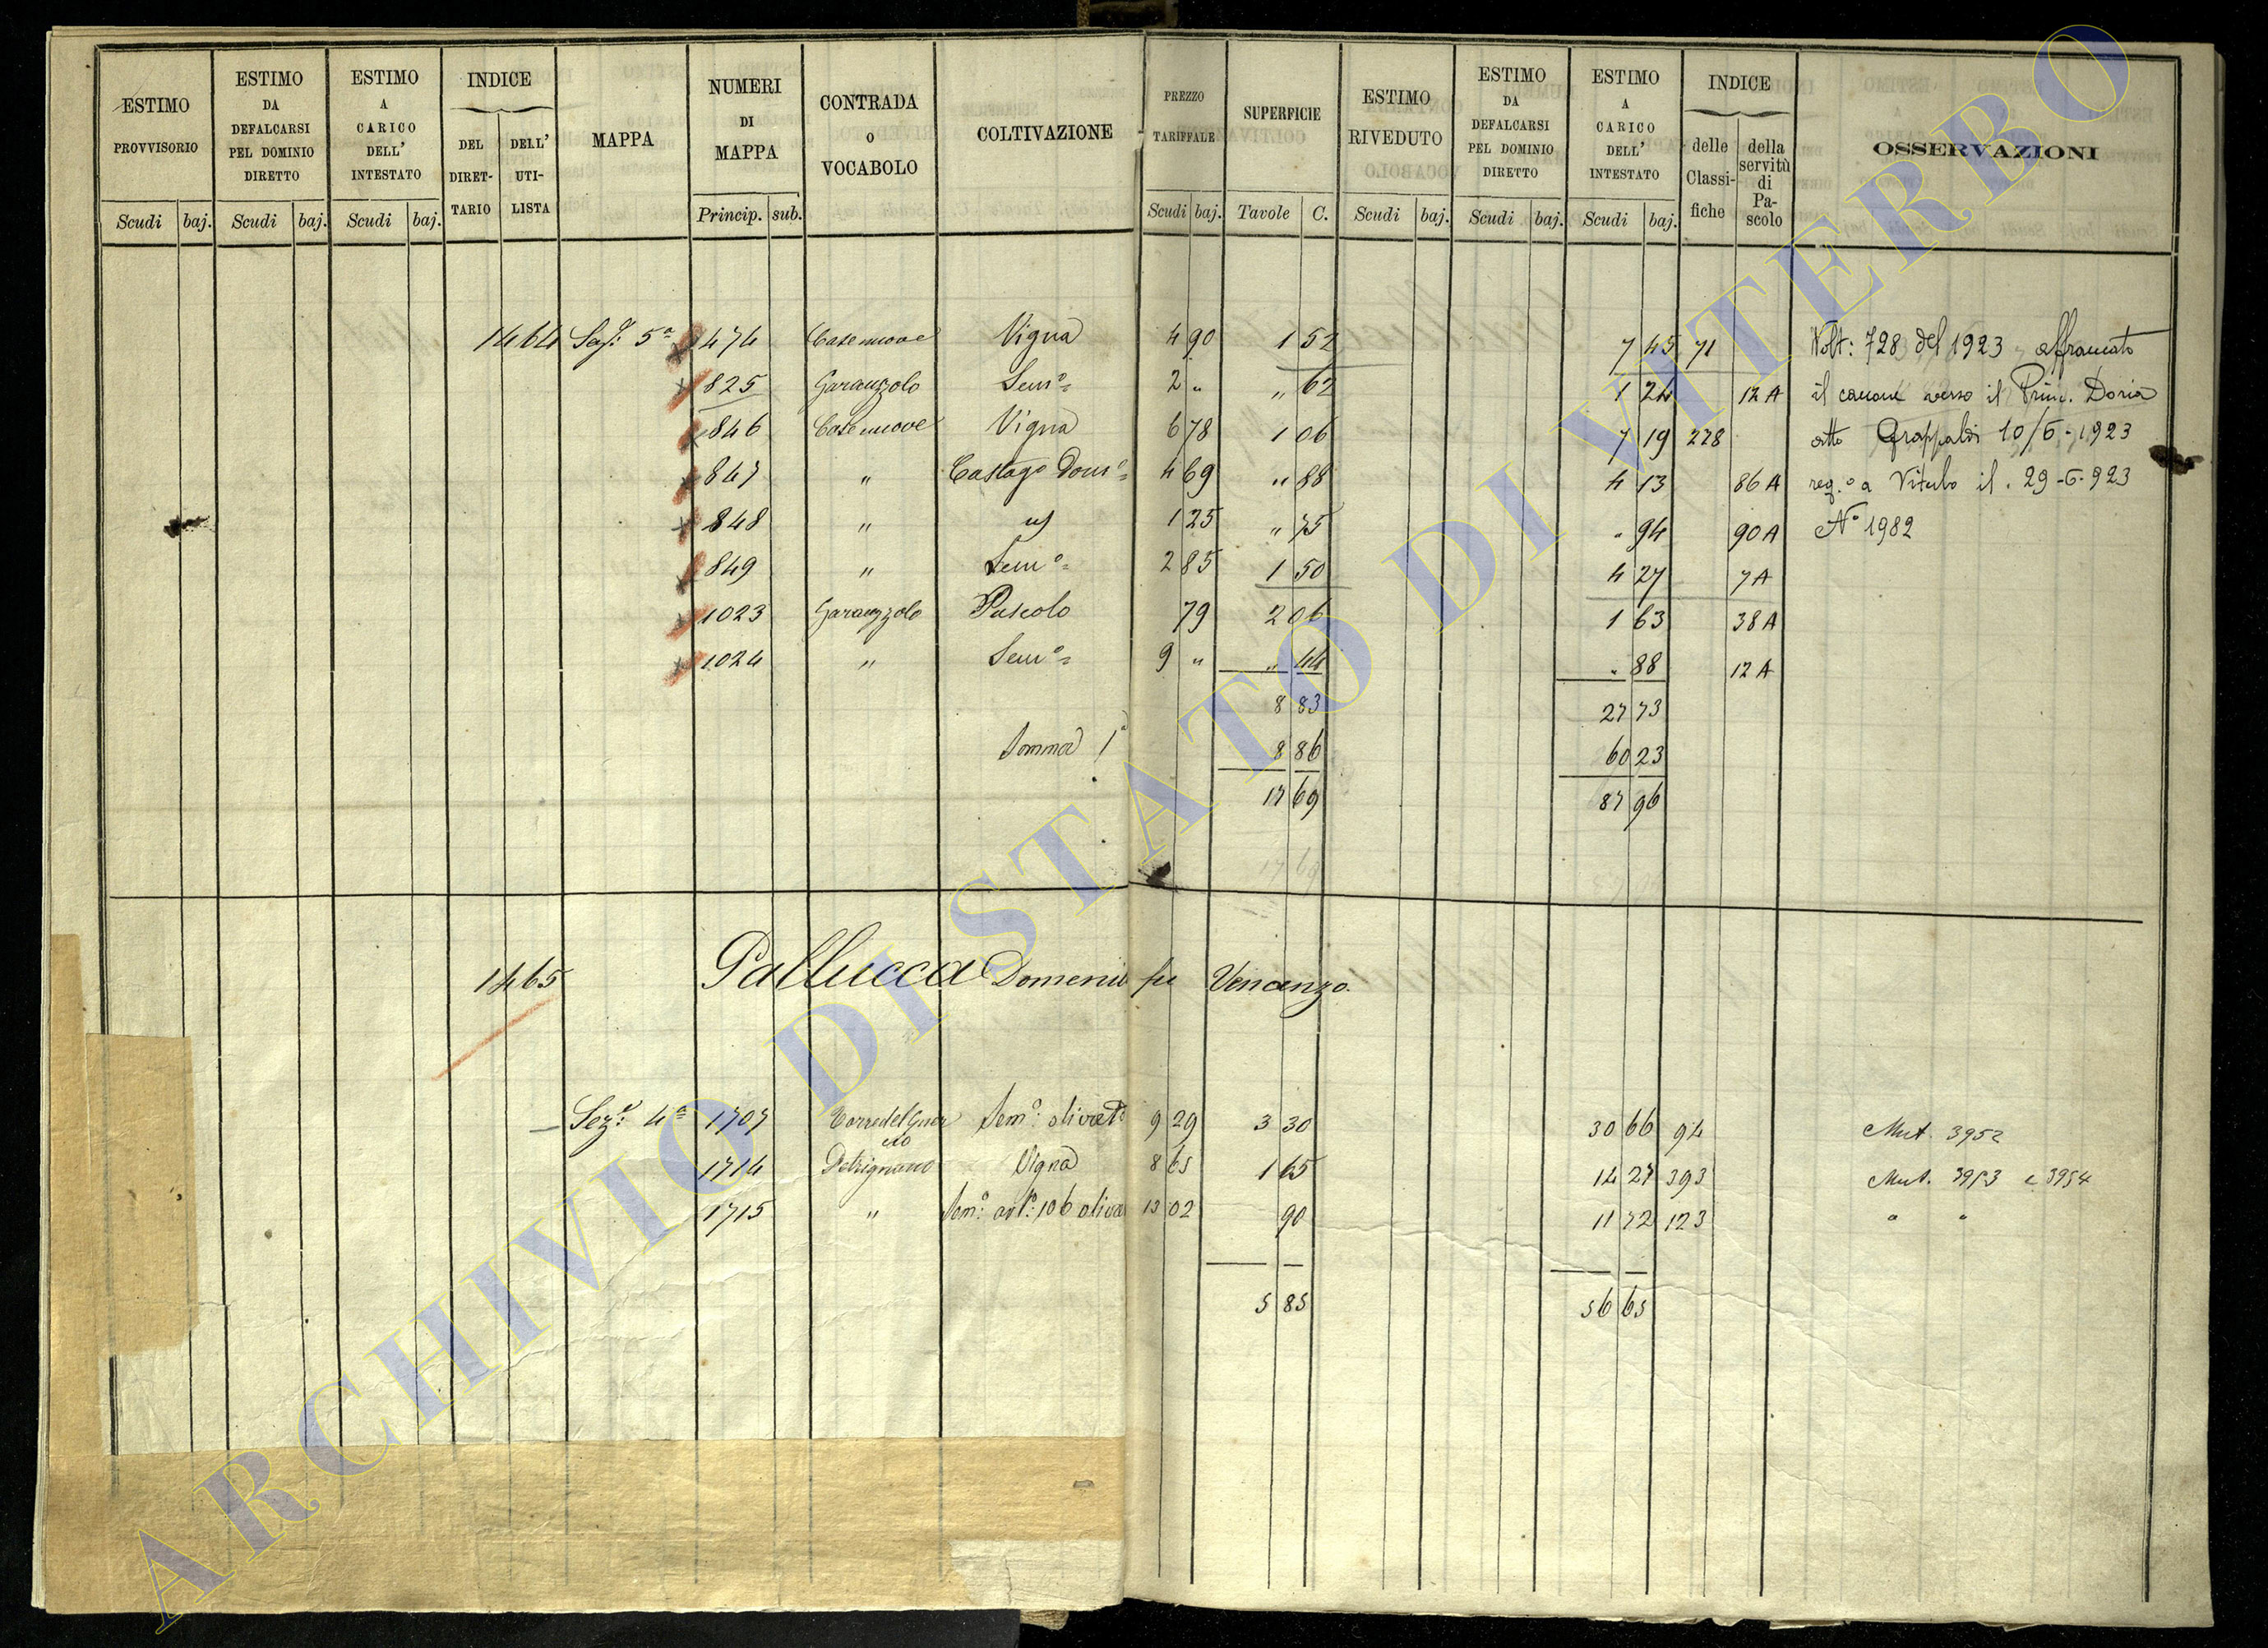 ESTIMO PROVVISORIO
ESTIMO DA DEFALCARSI PEL DOMINIO DIRETTO
ESTIMO A CARICO DELL' INTESTATO
INDICE
DEL DIRETTARIO
DELL' UTILISTA
MAPPA
NUMERI DI MAPPA
CONTRADA O VOCABOLO
COLTIVAZIONE
PREZZO TARIFFALE
SUPERFICIE
ESTIMO RIVEDUTO
ESTIMO DA DEFALCARSI PEL DOMINIO DIRETTO
ESTIMO A CARICO DELL' INTESTATO
INDICE
delle Classifiche
della servitù di Pascolo
OSSERVAZIONI
Scudi baj. Scudi baj. Scudi baj. Princip. sub. Scudi baj. Tavole C. Scudi baj. Scudi baj. Scudi baj.
1464 Sez: 5a 474 Casenuove Vigna 4 90 1 52 7 45 71 Volt: 728 del 1923 affrancato
825 Garauzzolo Semo= 2 „ „ 62 1 24 12 A il canone verso il Prin. Doria
846 Casenuove Vigna 6 78 1 06 7 19 228 atto Grappaldi 10/6-1923
847 „ Castago Domo= 4 69 „ 88 4 13 86 A rego a Viterbo il. 29-6-923
848 „ 1 25 „ 75 „ 94 90 A No 1982
849 „ Semo= 2 85 1 50 4 27 7 A
1023 Garauzzolo Pascolo 79 2 06 1 63 38 A
1024 „ Semo= 9 „ „ 44 „ 88 12 A
8 83 27 73
Somma 1a 8 86 60 23
17 69 87 96
1465 Pallucca Domenico fu Vincenzo.
Seze: 4a 1707 Torre del Guercio Semo: olivato 9 29 3 30 30 66 94 Mut. 3952
1714 Petrignano Vigna 8 65 1 65 14 27 393 Mut. 3953 e 3954
1715 „ Semo: 106 olivi 13 02 90 11 72 123 „ „
5 85 56 65
ARCHIVIO DI STATO DI VITERBO